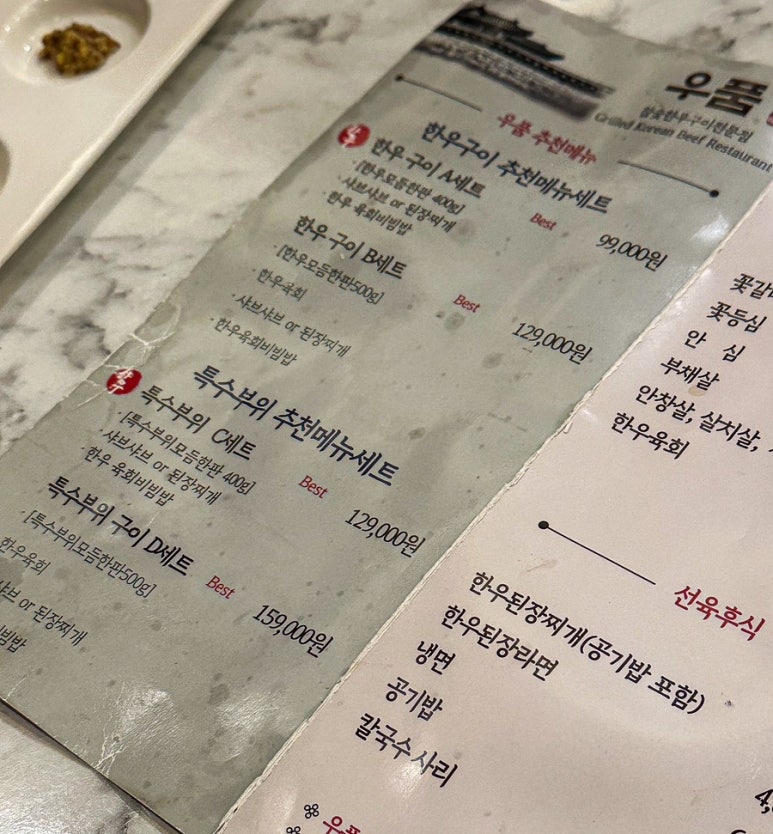 우품
참숯한우구이전문점
Grilled Korean Beef Restaurant
우품 추천메뉴
한우구이 추천메뉴세트
한우
한우 구이 A세트
Best
99,000원
· [한우모듬한판 400g]
· 샤브샤브 or 된장찌개
· 한우 육회비빔밥
한우 구이 B세트
Best
129,000원
· [한우모듬한판500g]
· 한우육회
· 샤브샤브 or 된장찌개
· 한우육회비빔밥
특수부위 추천메뉴세트
한우
특수부위 C세트
Best
129,000원
· [특수부위모듬한판 400g]
· 샤브샤브 or 된장찌개
· 한우 육회비빔밥
특수부위 구이 D세트
Best
159,000원
· [특수부위모듬한판500g]
한우육회
샤브 or 된장찌개
비빔밥
꽃등심
안 심
부채살
안창살, 살치살,
한우육회
선육후식
한우된장찌개(공기밥 포함)
한우된장라면
냉면
공기밥
칼국수 사리